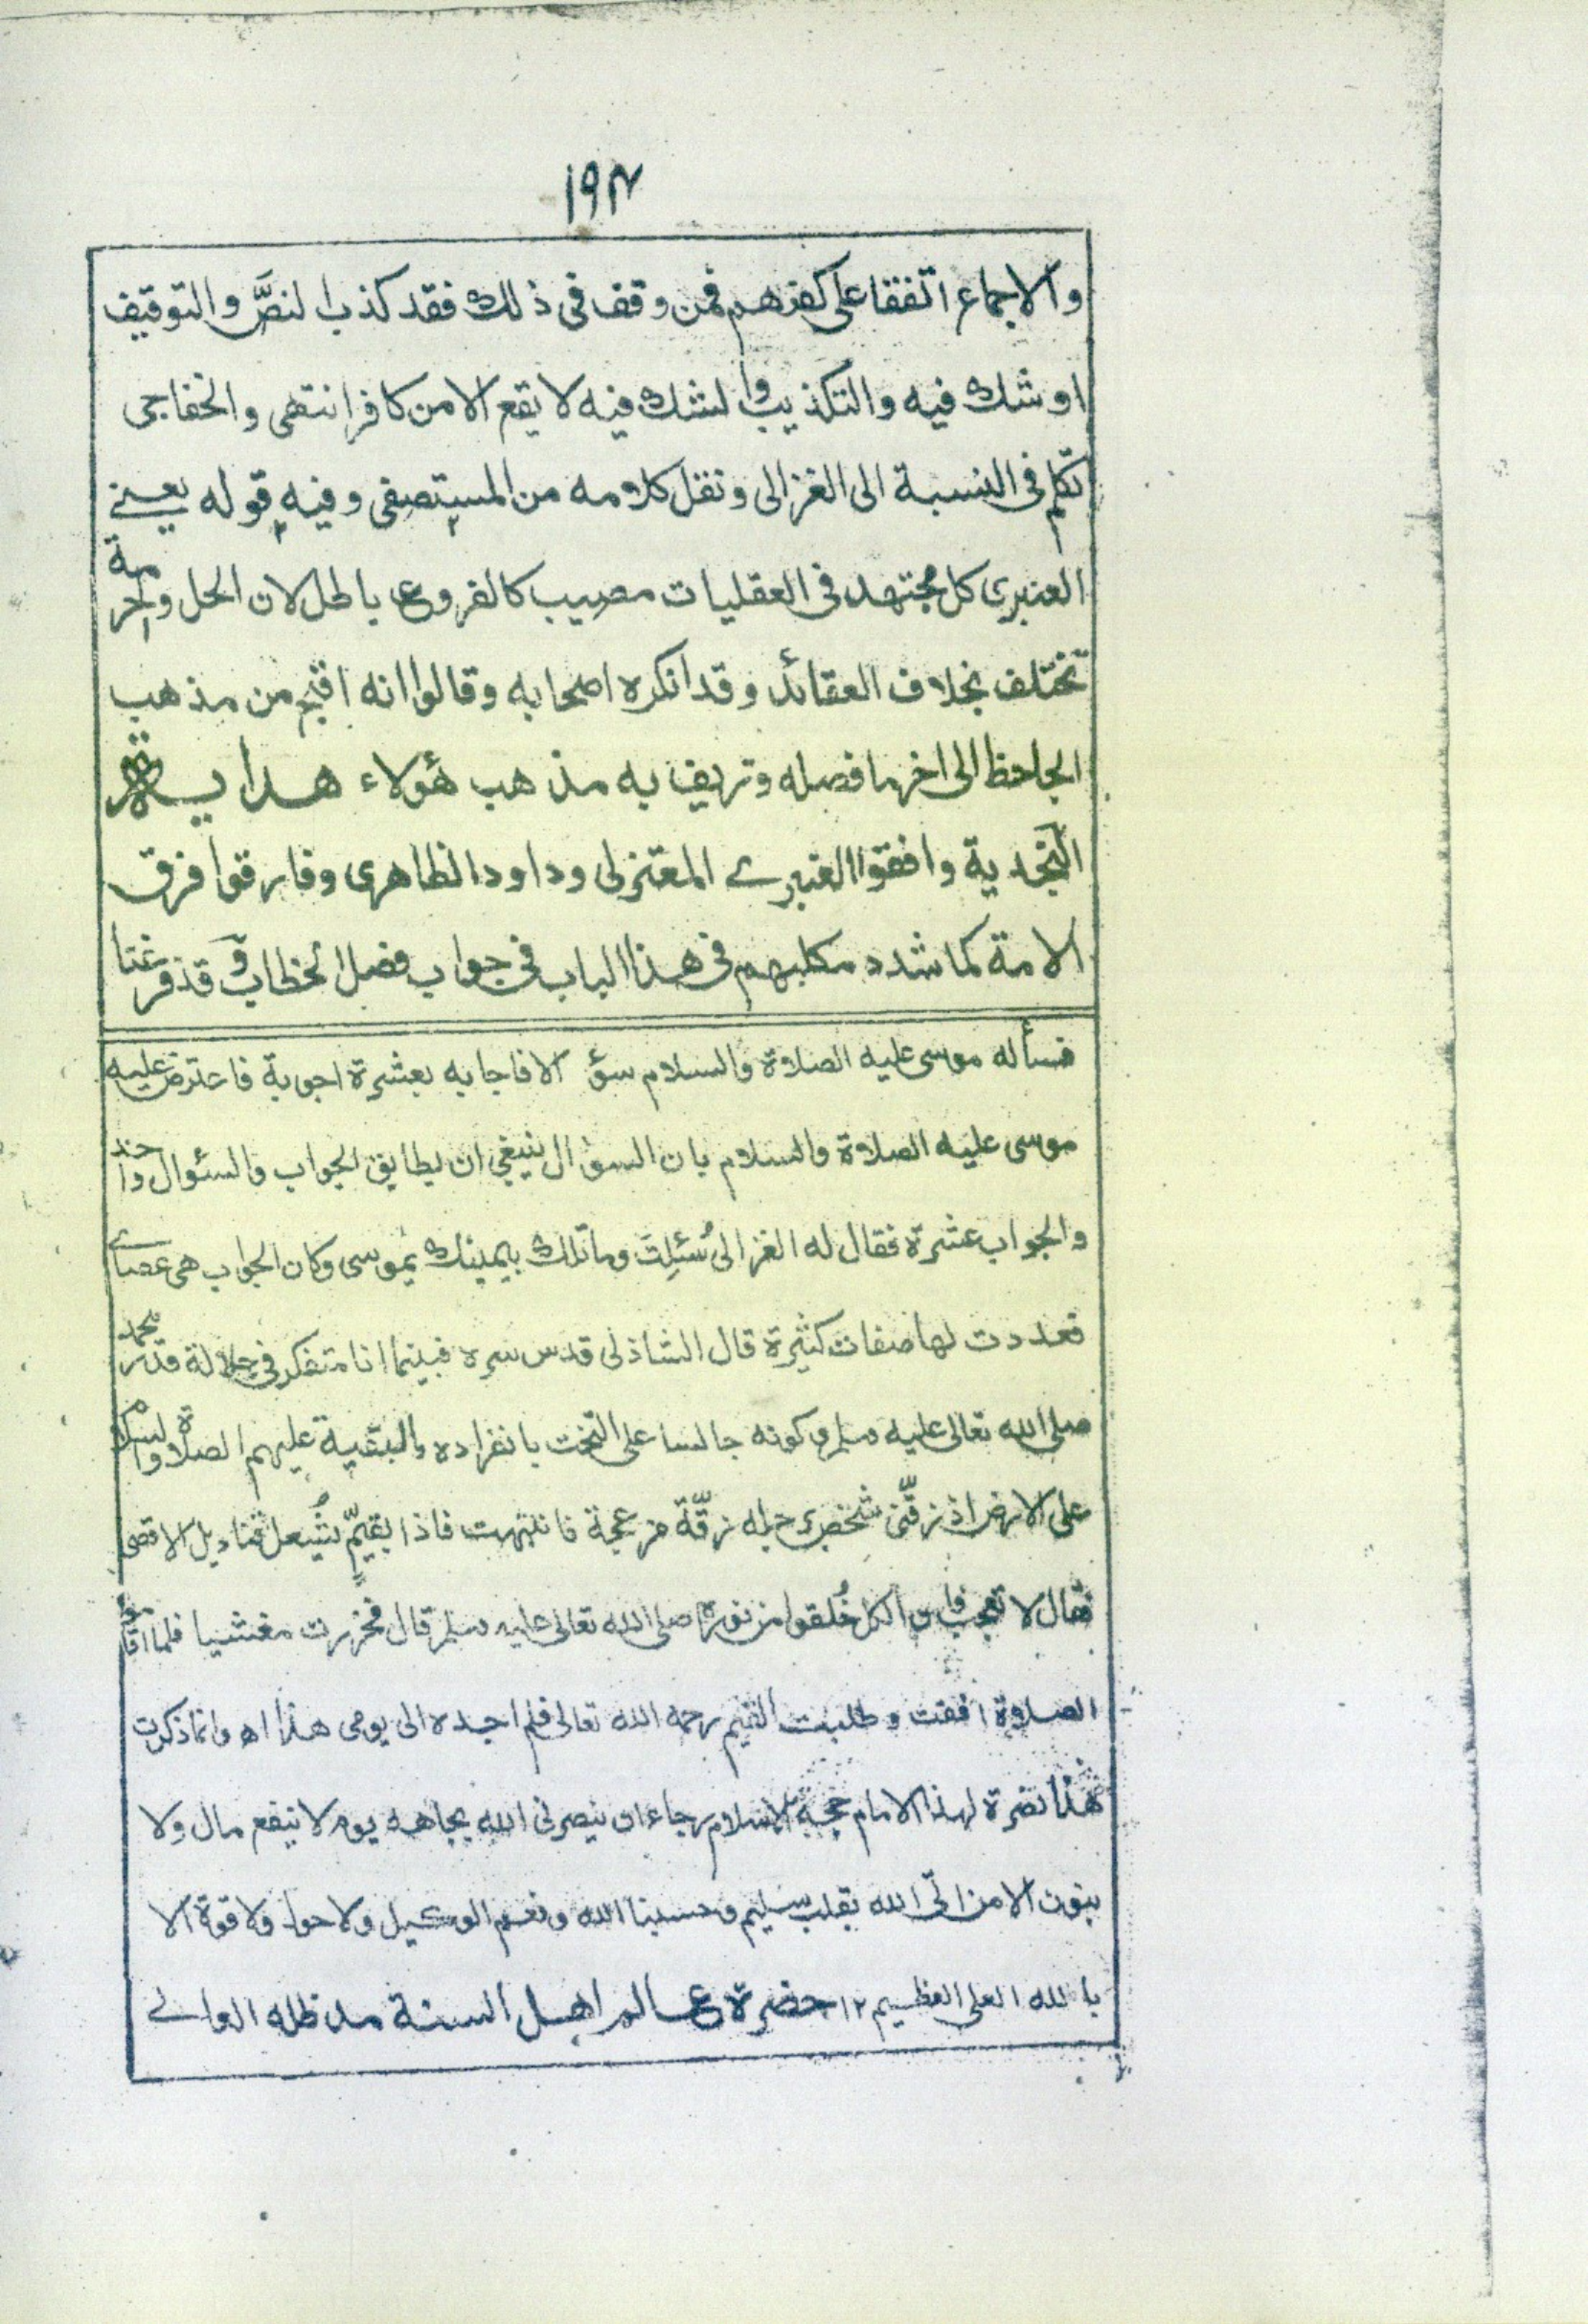 ١٩٤
والاجماع اتفقا على كفرهم فمن وقف فى ذلك فقد كذب النصَّ والتوقيف
او شك فيه والتكذيب والشك فيه لا يقع الا من كافر انتهى والخفاجى
تكلم فى النسبة الى الغزالى ونقل كلامه من المستصفى وفيه قوله يعنے
العنبرى كل مجتهد فى العقليات مصيب كالفروع باطل لان الحل والحرمة
تختلف بخلاف العقائد وقد انكره اصحابه وقالوا انه اقبح من مذهب
الجاحظ الى اخر ما فصله وتزييف به مذهب هؤلاء هذا
النجدية وافقوا العنبرے المعتزلى وداود الظاهرى وفارقوا فرق
الامة كما شدد مكلبهم فى هذا الباب فى جواب فصل الخطاب وقد فرغنا
فسأله موسى عليه الصلاة والسلام سؤالا فاجابه بعشرة اجوبة فاعترض عليه
موسى عليه الصلاة والسلام بان السؤال ينبغى ان يطابق الجواب والسئوال واحد
والجواب عشرة فقال له الغزالى سُئِلتَ وما تلك بيمينك يموسى وكان الجواب هى عصاے
فعددت لها صفات كثيرة قال الشاذلى قدس سره فبينما انا متفكر فى جلالة قدر محمد
صلى الله تعالى عليه وسلم وكونه جالسا على التخت بانفراده والبقية عليهم الصلاة والسلام
على الارض اذ زقّنى شخص برجله زقّة مزعجة فانتبهت فاذا بقيّم يُشعل قناديل الاقصى
فقال لا تعجب فان الكل خُلقوا من نوره صلى الله تعالى عليه وسلم قال فخررت مغشيا فلما اقاموا
الصلاة افقت وطلبت القيم رحمه الله تعالى فلم اجده الى يومى هذا اه وانما ذكرت
هذا نصرة لهذا الامام حجة الاسلام رجاء ان ينصرنى الله بجاهه يوم لا ينفع مال ولا
بنون الا من اتى الله بقلب سليم وحسبنا الله ونعم الوكيل ولا حول ولا قوة الا
بالله العلى العظيم ١٢ حضرة عالم اهل السنة مد ظله العالے